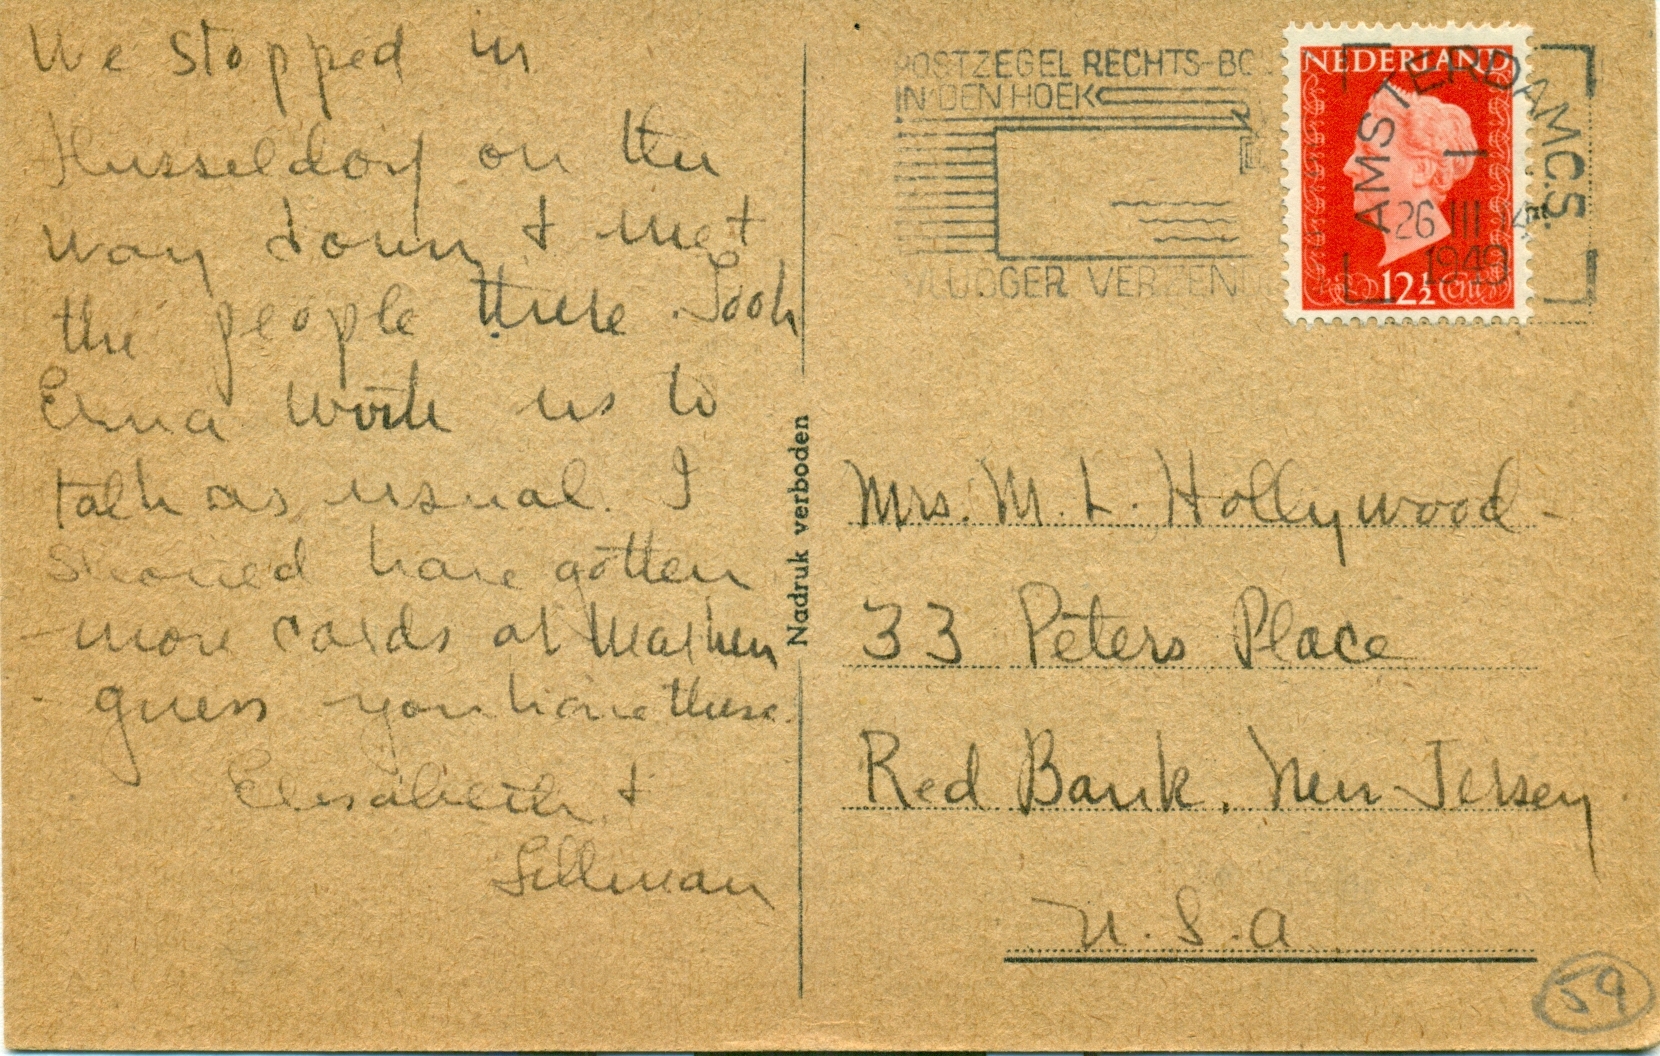 We stopped in
on the
way down & met
the people there. Took
Erna with us to
talk as usual. I
should have gotten
more cards at Marken
guess you have these.
Elisabeth &
Sillman
Nadruk verboden
POSTZEGEL RECHTS-BO
IN DEN HOEK
VLUGGER VERZEN
NEDERLAND
12½ Ct
AMSTERDAM C.S.
1
26 III 14
1949
Mrs. M. L. Hollywood -
33 Peters Place
Red Bank, New Jersey
U.S.A
59